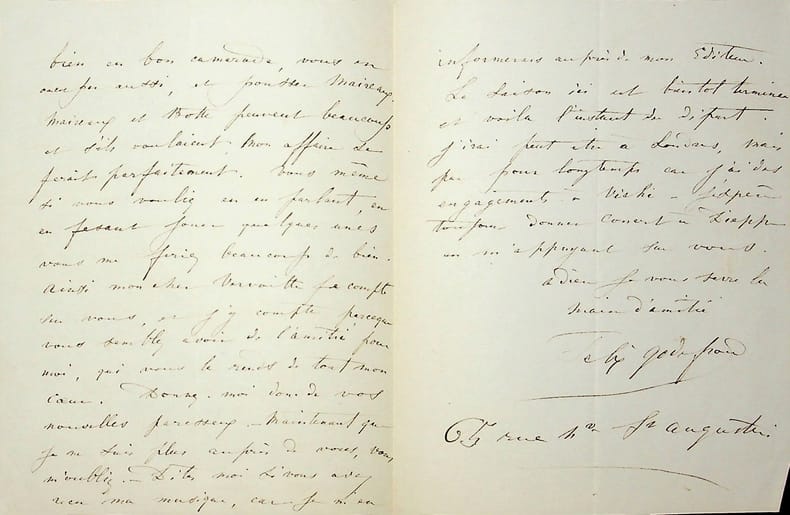 bien en bon camarade, vous en
avez peu aussi, et poussez Maireaux.
Maireaux et Motte peuvent beaucoup
et s'ils voulaient mon affaire se
ferait parfaitement. Vous même
si vous vouliez en en parlant, en
en fesant jouer quelques unes
vous me feriez beaucoup de bien.
ainsi mon cher Vervoitte je compte
sur vous, et j'y compte parceque
vous semblez avoir de l'amitié pour
moi, qui vous le rends de tout mon
cœur. Donnez-moi donc de vos
nouvelles paresseux – maintenant que
je ne suis plus auprès de vous, vous
m'oubliez – Dites moi si vous avez
recu ma musique, car je m'en
informerais auprès de mon Editeur.
La saison ici est bientot terminée
et voila l'instant du départ.
j'irai peut etre a Londres, mais
pas pour longtemps car j'ai des
engagements a Vichi – j'espère
toujours donner concert à Dieppe
en m'appuyant sur vous.
adieu je vous serre la
main d'amitié
Felix godefroid
65 rue nve St augustin